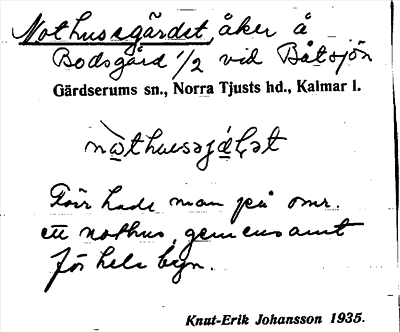 Nothusegärdet, åker å
Bodsgård 1/2 vid Båtsjön
Gärdserums sn., Norra Tjusts hd., Kalmar l.
Förr hade man på omr.
ett nothus, gemensamt
för hela byn.
Knut-Erik Johansson 1935.